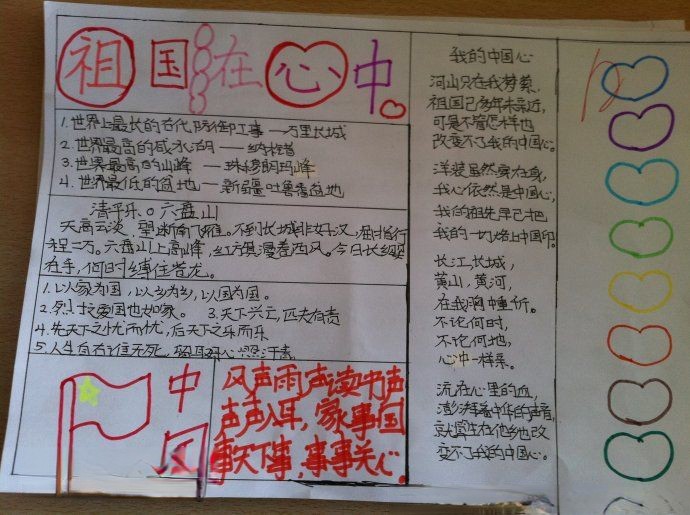 祖国在心中
1.世界上最长的古代防御工事——万里长城
2.世界最高的咸水湖——纳木错
3.世界最高的山峰——珠穆朗玛峰
4.世界最低的盆地——新疆吐鲁番盆地
清平乐。六盘山
天高云淡,望断南飞雁。不到长城非好汉,屈指行
程二万。六盘山上高峰,红旗漫卷西风。今日长缨
在手,何时缚住苍龙。
1.以家为国,以乡为乡,以国为国。
2.烈士爱国也如家。 3.天下兴亡,匹夫有责
4.先天下之忧而忧,后天下之乐而乐
5.人生自古谁无死,留取丹心照汗青
中
国
风声雨声读书声
声声入耳,家事国
事天下事,事事关心。
我的中国心
河山只在我梦萦,
祖国已多年未亲近,
可是不管怎样也
改变不了我的中国心。
洋装虽然穿在身,
我心依然是中国心,
我的祖先早已把
我的一切烙上中国印。
长江,长城,
黄山,黄河,
在我胸中重千斤。
不论何时,
不论何地,
心中一样亲。
流在心里的血,
澎湃着中华的声音,
就算生在他乡也改
变不了我的中国心。